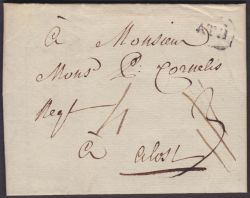 ATH
à Monsieur
Mons P: Cornelis
Negt
à alost